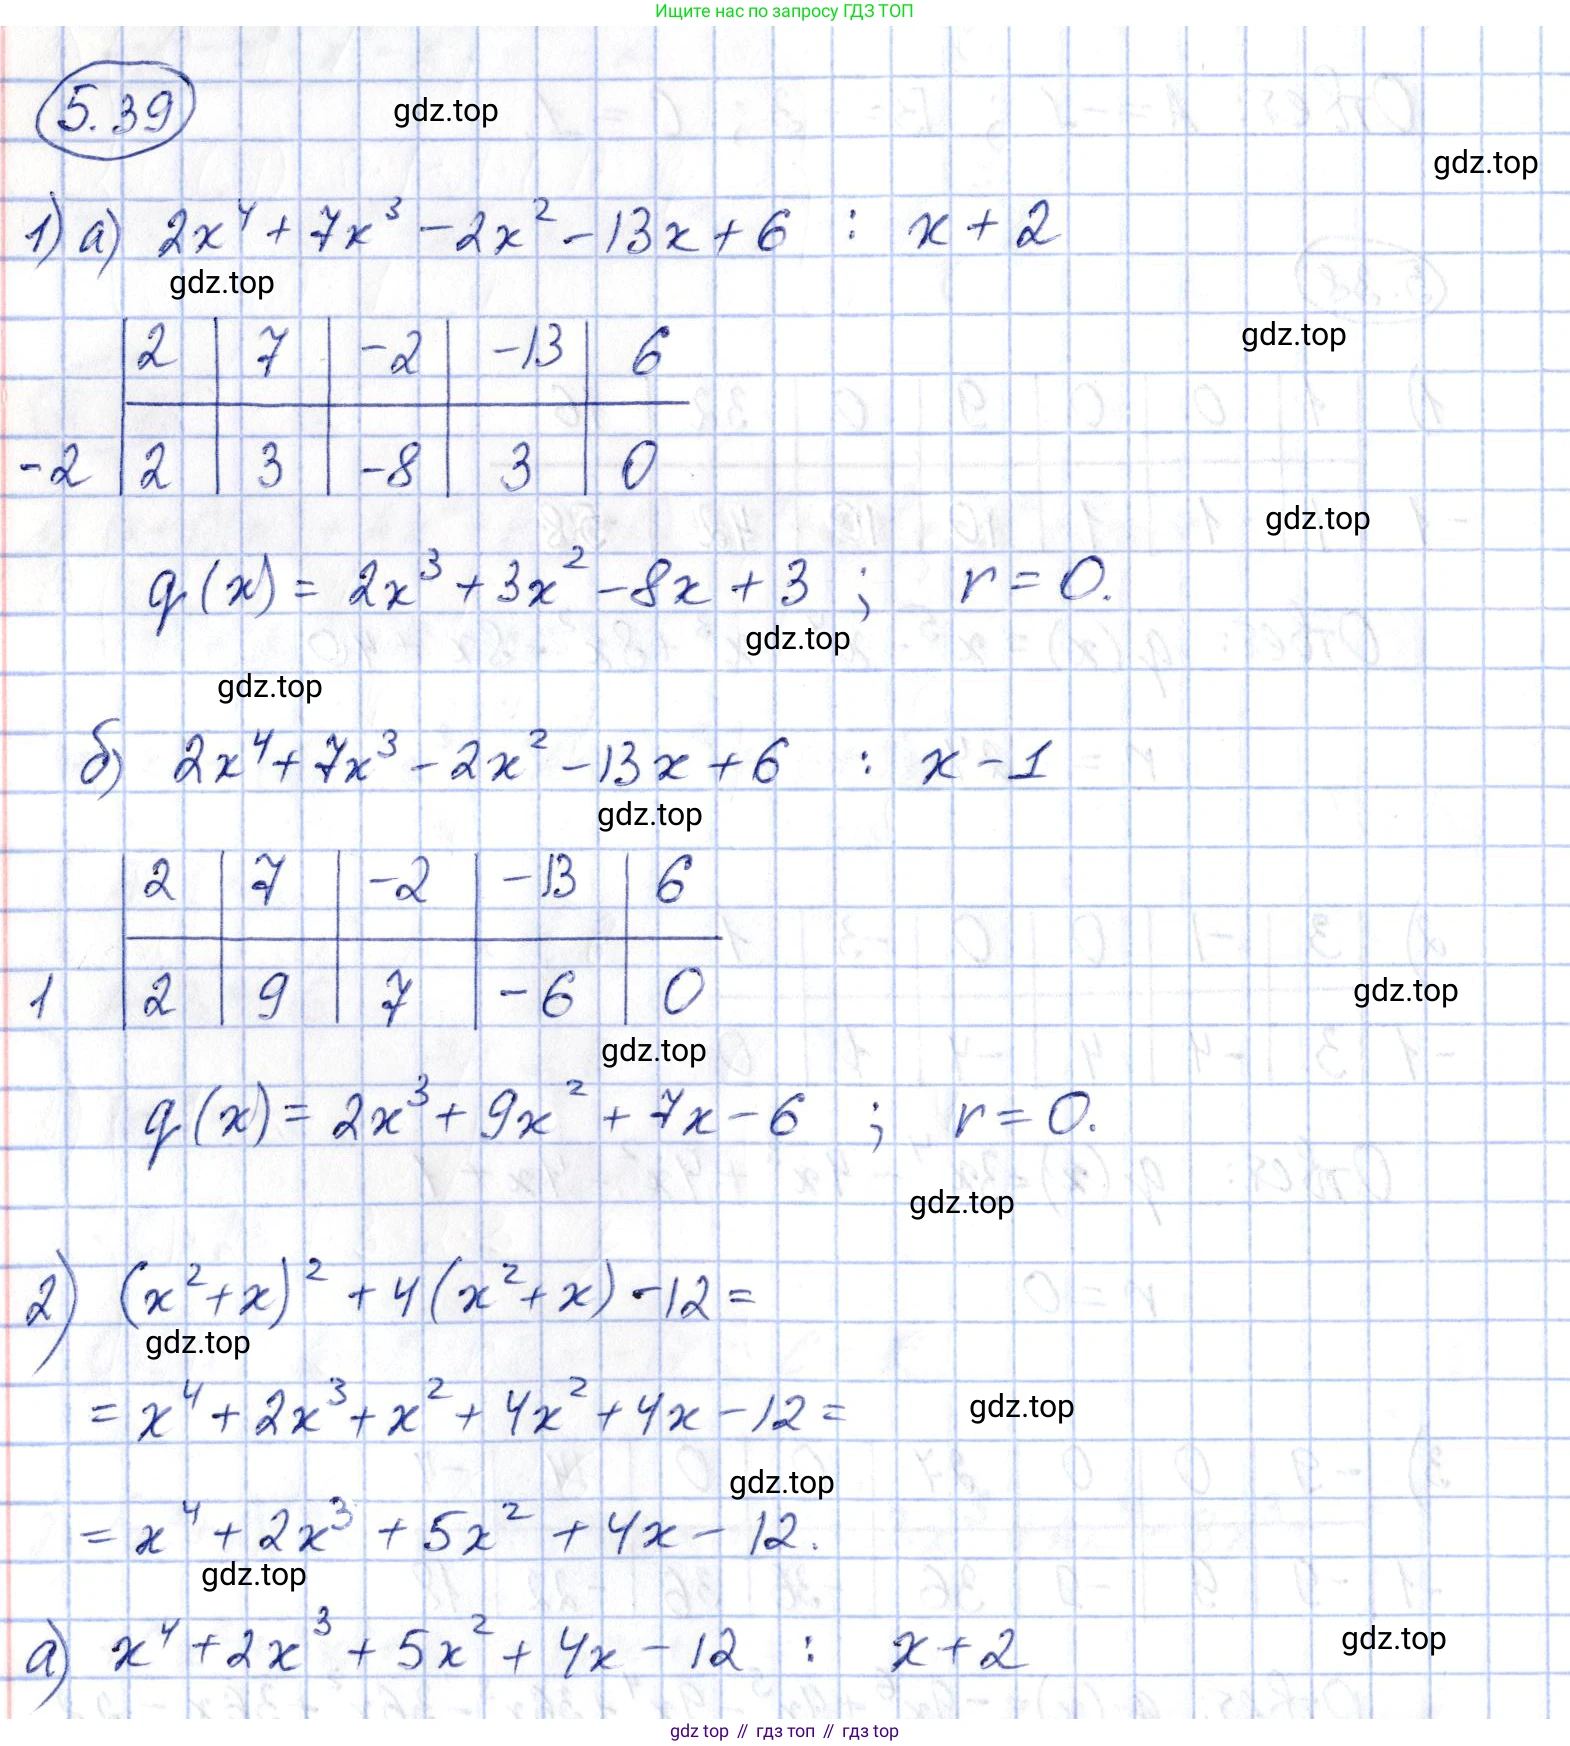 Ищите нас по запросу ГДЗ ТОП
5.39
gdz.top
gdz.top
1) а) 2x⁴ + 7x³ - 2x² - 13x + 6 : x + 2
gdz.top
2 | 7 | -2 | -13 | 6
gdz.top
-2 | 2 | 3 | -8 | 3 | 0
gdz.top
q(x) = 2x³ + 3x² - 8x + 3 ; r = 0.
gdz.top
gdz.top
б) 2x⁴ + 7x³ - 2x² - 13x + 6 : x - 1
gdz.top
2 | 7 | -2 | -13 | 6
1 | 2 | 9 | 7 | -6 | 0
gdz.top
gdz.top
q(x) = 2x³ + 9x² + 7x - 6 ; r = 0.
gdz.top
2) (x² + x)² + 4(x² + x) - 12 =
gdz.top
= x⁴ + 2x³ + x² + 4x² + 4x - 12 =
gdz.top
gdz.top
= x⁴ + 2x³ + 5x² + 4x - 12.
gdz.top
а) x⁴ + 2x³ + 5x² + 4x - 12 : x + 2
gdz.top
gdz top // гдз топ // гдз top